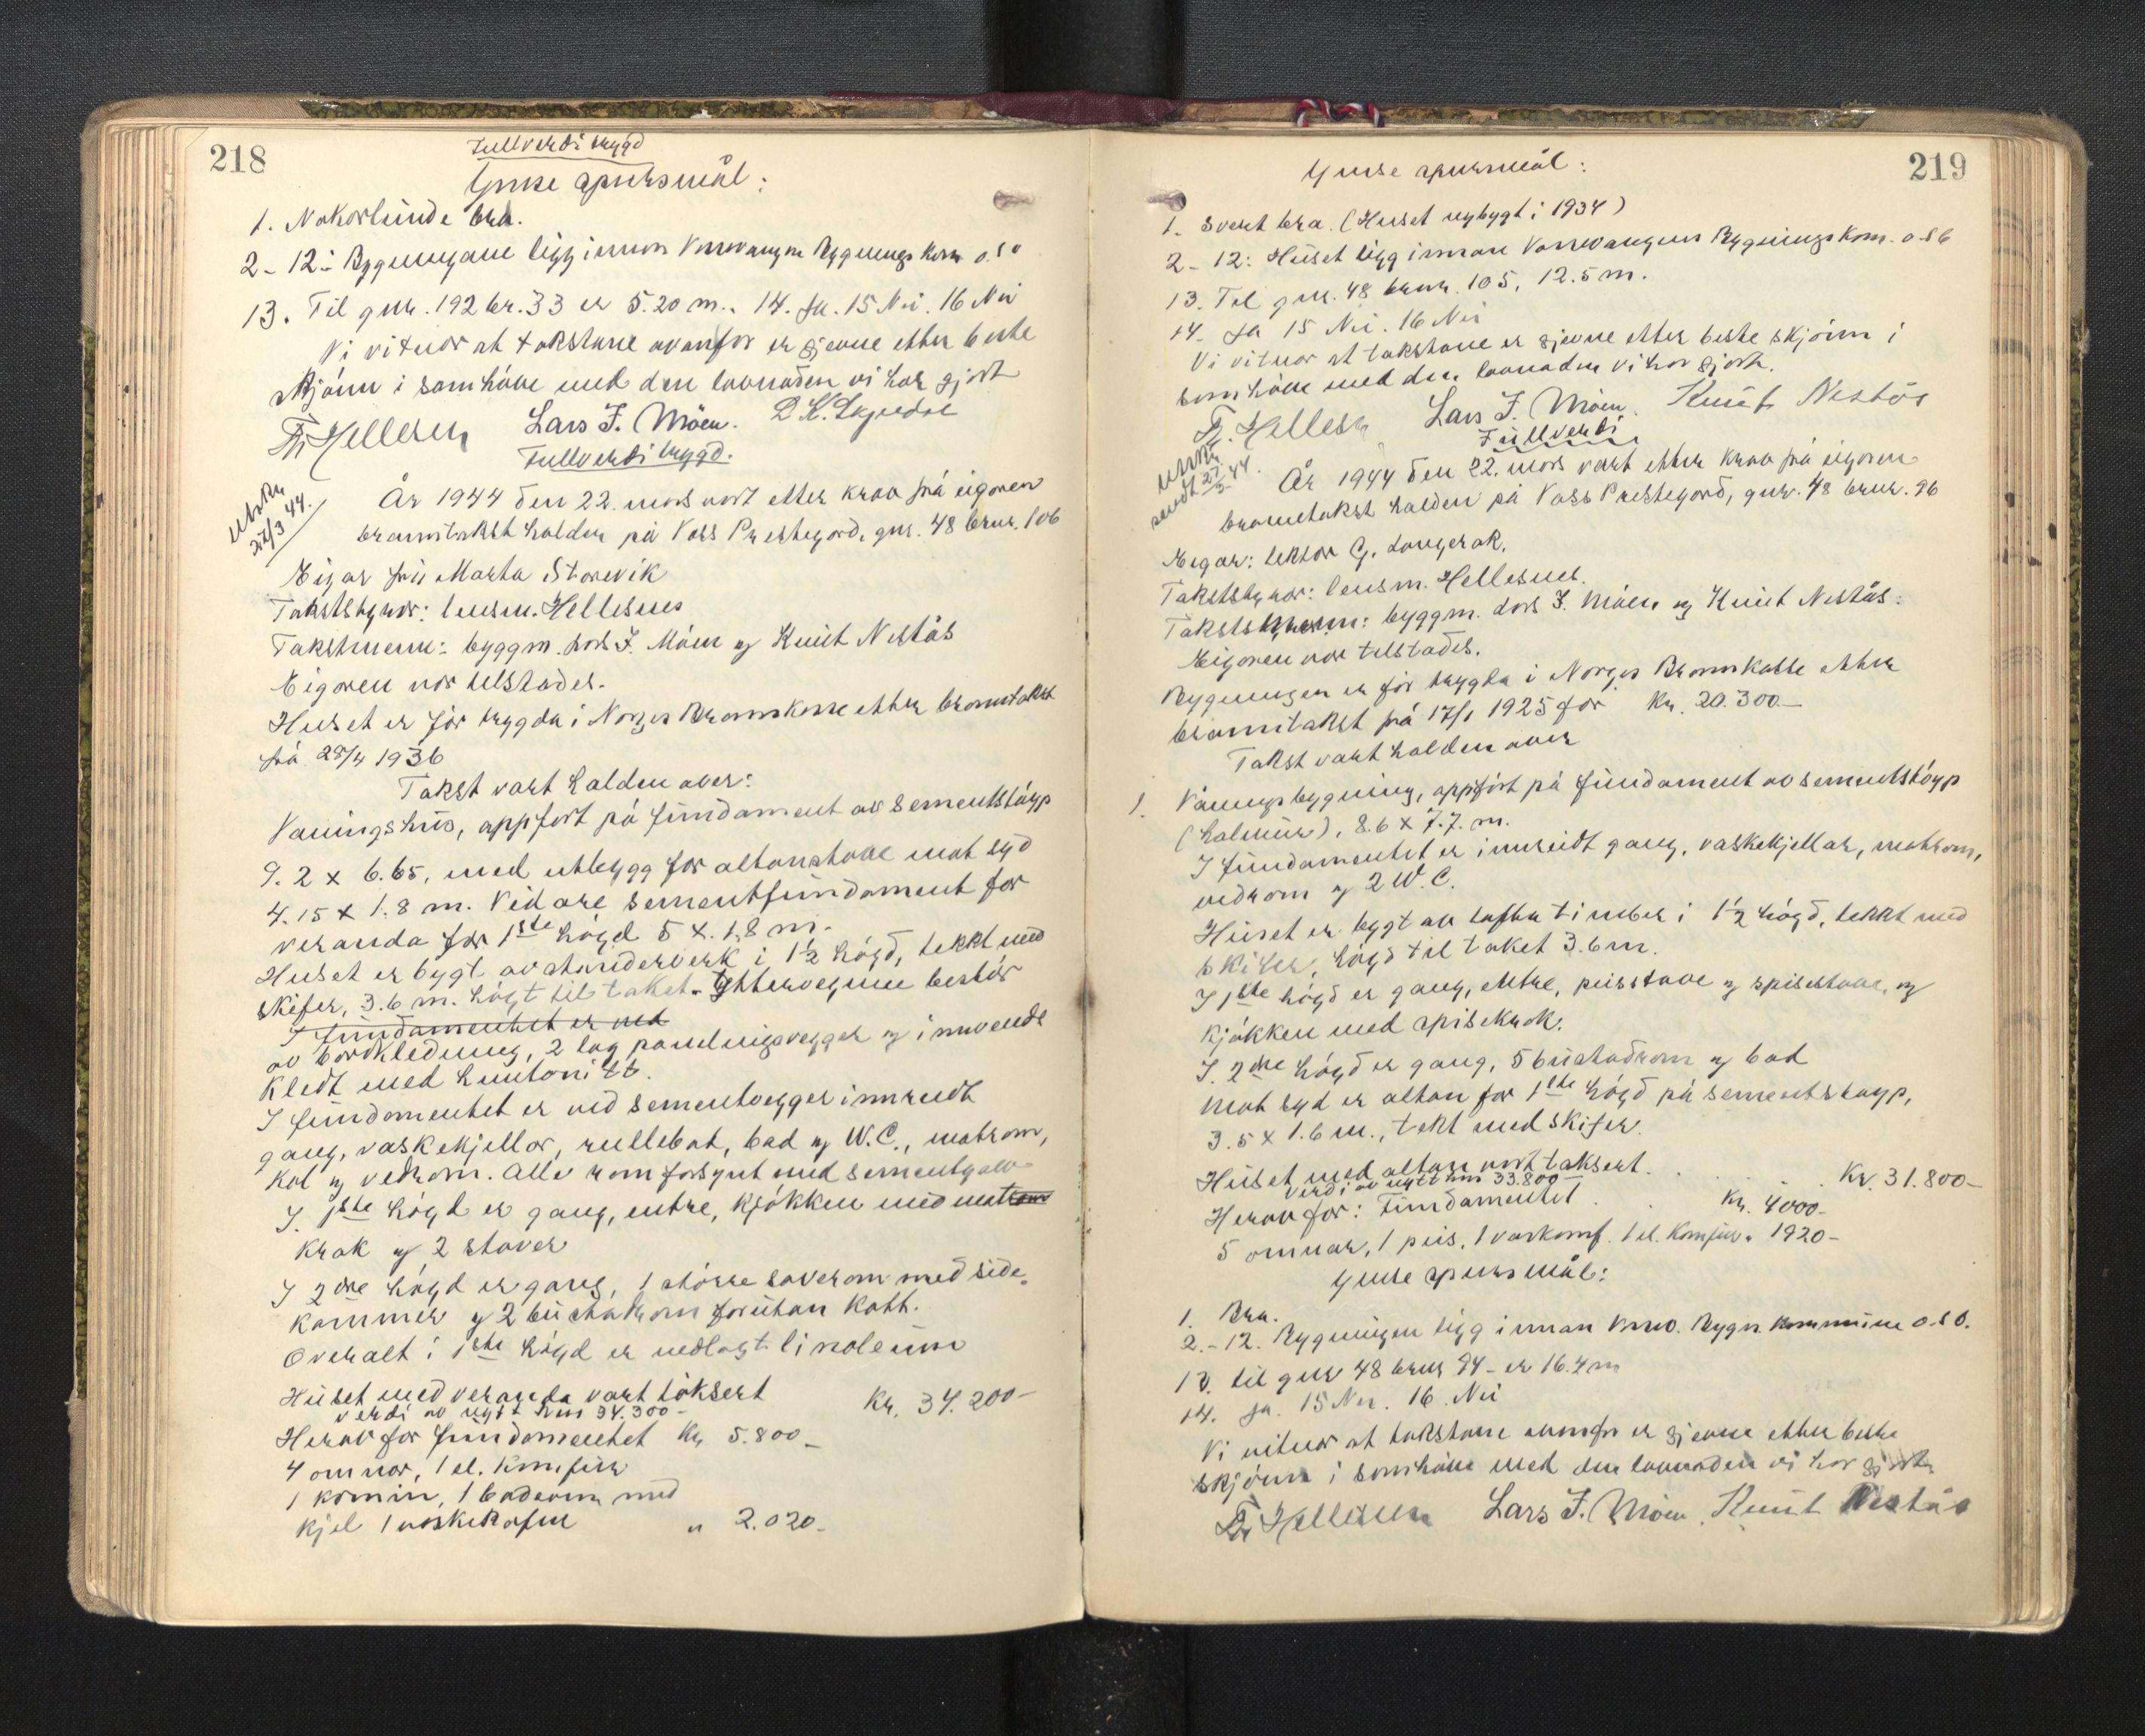 218
Fullverdi trygd
Ymse spursmål:
1. Nokorlunde bra.
2-12: Bygningane ligg innan Vossevangen Bygnings Kom o.s.v
13. Til gnr. 192 br. 33 er 5.20 m. 14. Ja. 15 Nei. 16 Nei
Vi vitnar at takstane ovanfor er gjevne etter beste
skjönn i samhöve med den lovnaden vi har gjort
Fr. Hellesnes Lars F. Möen.
Fullverdi trygd.
Utskr.
27/3 44.
År 1944 den 22. mars vart etter krav frå eigaren
branntakst halden på Voss Prestegard, gnr. 48 brnr. 106
Eigar fru Marta Storevik
Takststyrar: lensm. Hellesnes
Takstmenn: byggm. Lars F. Möen og Knut Nestås
Eigaren var tilstades.
Huset er för trygda i Norges Brannkasse etter branntakst
frå 28/4 1936
Takst vart halden over:
Vaningshus, uppfört på fundament av sementstöyp
9.2 x 6.65, med utbygg for altanstove mot syd
4.15 x 1.8 m. Vidare sementfundament for
veranda for 1ste högd 5 x 1.8 m.
Huset er bygt av stenderverk i 1½ högd, tekkt med
skifer, 3.6 m. högt til taket. Ytterveggene består
I fundamentet er ved
av bordkledning, 2 lag panelingsvegger og innvendt
kledt med huntonitt.
I fundamentet er ved sementvegger innreidt
gang, vaskekjellar, rullebod, bad og W.C., matrom,
kol og vedrom. Alle rom forsynt med sementgolv
I. 1ste högd er gang, entre, kjökken med matrom
krok og 2 stover
I 2dre högd er gang, 1 större soverom med side-
kammer og 2 bustadrom forutan kott.
Overalt i 1ste högd er nedlagt linoleum
Huset med veranda vart taksert Kr. 34.200-
verdi av nytt hus 34.300-
Herav for fundamentet Kr 5.800-
4 omnar, 1 el. komfur
1 kamin, 1 badeomn med
kjel 1 vaskekofur " 2.020-
219
Ymse spursmål:
1. Svert bra. (Huset nybygt i 1934)
2-12: Huset ligg innan Vossevangens Bygningskom. o.s.v
13. Til gnr. 48 brnr. 105, 12.5 m.
14. Ja 15 Nei. 16 Nei
Vi vitnar at takstane er gjevne etter beste skjönn i
samhöve med den lovnaden vi har gjort.
Fr. Hellesnes Lars F. Möen. Knut Nestås
Fullverdi
Utskr.
sendt 27/3 44.
År 1944 den 22. mars vart etter krav frå eigaren
branntakst halden på Voss Prestegard, gnr. 48 brnr. 96
Eigar: lektor G. Langerak.
Takststyrar: lensm. Hellesnes.
Takstsmenn: byggm. Lars F. Möen og Knut Nestås.
Eigaren var tilstades.
Bygningen er för trygda i Norges Brannkasse etter
branntakst frå 17/1 1925 for Kr. 20.300.-
Takst vart halden over
1. Våningsbygning, uppfört på fundament av sementstöyp
(holmur), 8.6 x 7.7. m.
I fundamentet er innreidt gang, vaskekjellar, matrom,
vedrom og 2 W.C.
Huset er bygt av lafta timber i 1½ högd, tekkt med
skifer, högd til taket 3.6 m.
I 1ste högd er gang, entre, peisstove og spisestove, og
kjökken med spisekrok.
I. 2dre högd er gang, 5 bustadrom og bad
Mot syd er altan for 1ste högd på sementstøyp,
3.5 x 1.6 m., tekt med skifer.
Huset med altan vart taksert. Kr. 31.800-
verdi av nytt hus 33.800
Herav for: Fundamentet Kr. 4000-
5 omnar, 1 peis, 1 vaskomf. 1 el. komfur " 1920-
Ymse spursmål:
1. Bra.
2.-12. Bygningen ligg innan Vossev. Bygn. kommune o.s.v.
13. til gnr 48 brnr 94- er 16.4 m
14. Ja. 15 Nei. 16. Nei
Vi vitnar at takstane ovanfor er gjevne etter beste
skjönn i samhöve med den lovnaden vi har gjort
Fr. Hellesnes Lars F. Möen. Knut Nestås